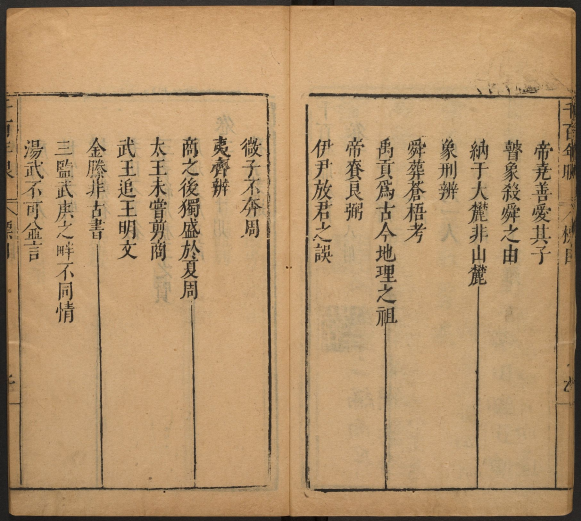 帝堯善愛其子
瞽象殺舜之由
納于大麓非山麓
象刑辨
舜葬蒼梧考
禹貢爲古今地理之祖
帝賚良弼
伊尹放君之誤
微子不奔周
夷齊辨
商之後獨盛於夏周
太王未嘗剪商
武王追王明文
金縢非古書
三監武庚之畔不同情
湯武不可並言